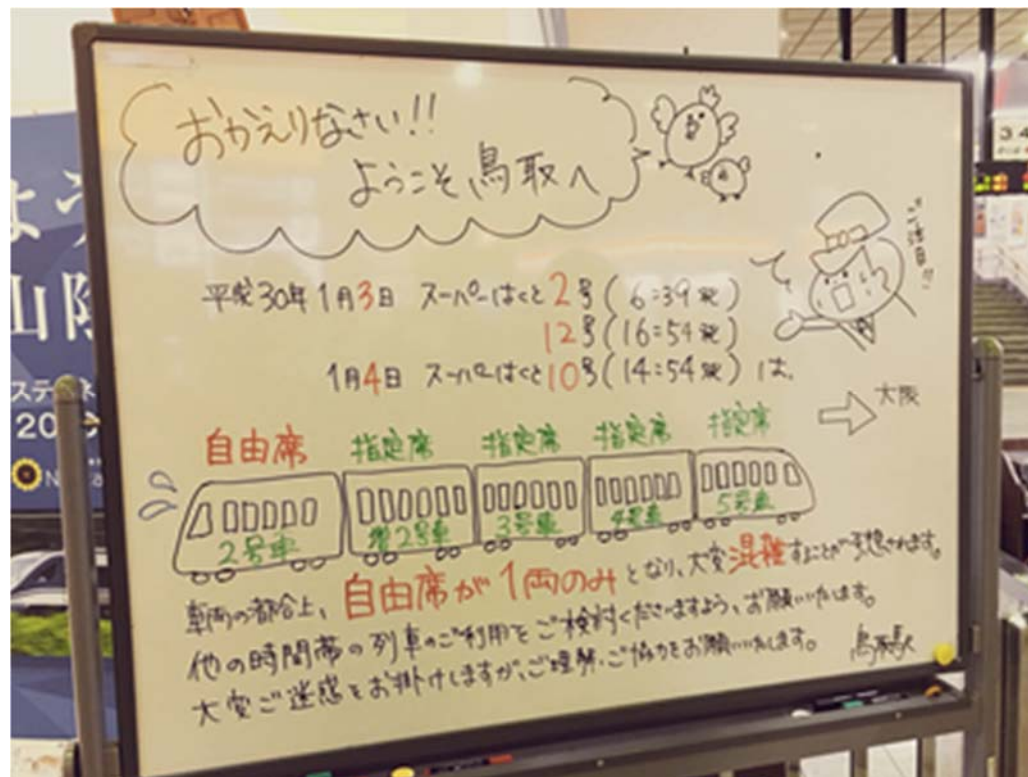 おかえりなさい!!
ようこそ鳥取へ
ご注目!!
平成30年1月3日 スーパーはくと2号(6:39発)
12号(16:54発)
1月4日 スーパーはくと10号(14:54発)は、
大阪
自由席 指定席 指定席 指定席 指定席
2号車 増2号車 3号車 4号車 5号車
車両の都合上、自由席が1両のみとなり、大変混雑することが予想されます。
他の時間帯の列車のご利用をご検討くださいますよう、お願いいたします。
大変ご迷惑をお掛けしますが、ご理解・ご協力をお願いいたします。 鳥取駅